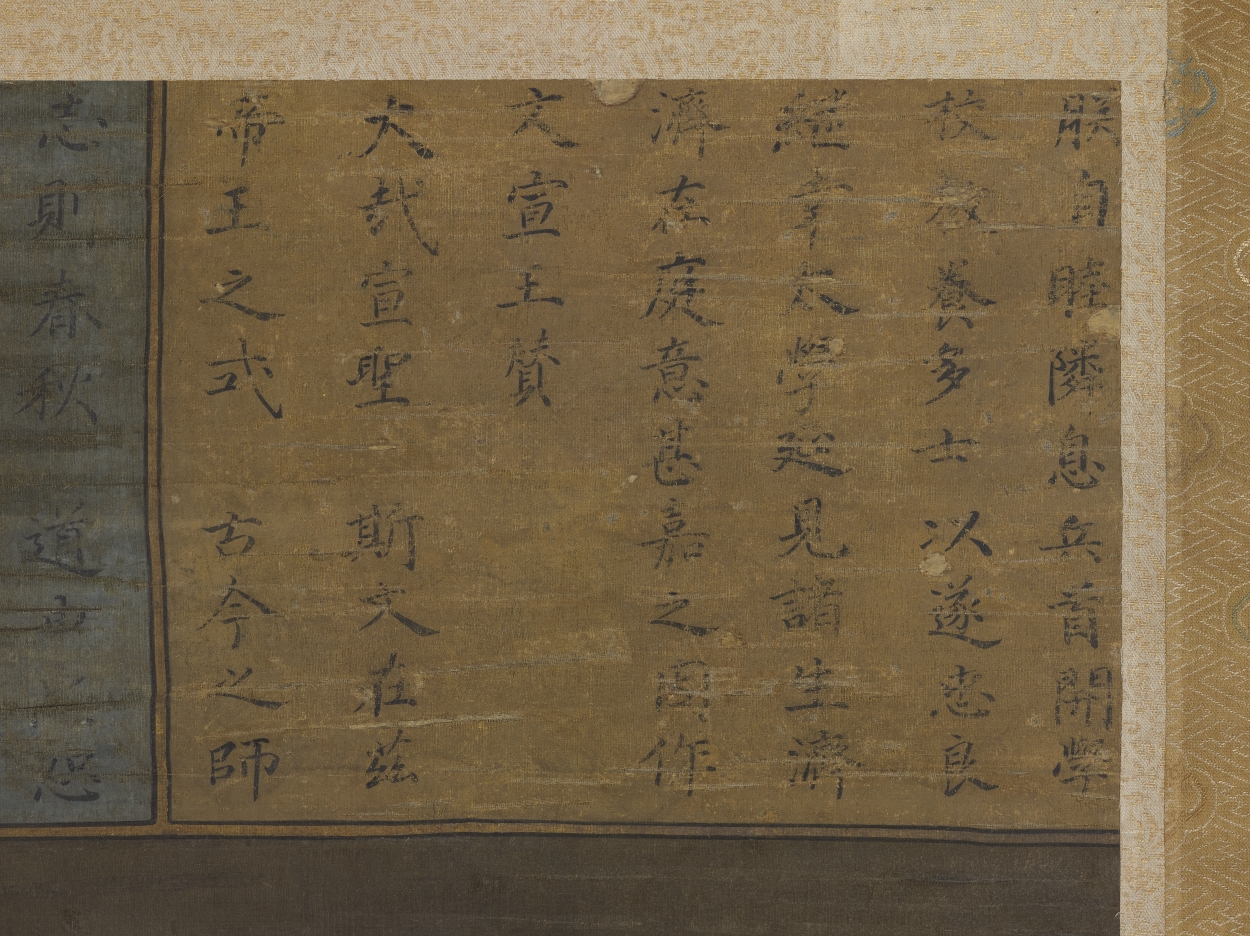 朕自睦隣息兵首開學
校教養多士以遂忠良
繼幸太學延見諸生濟
濟在庭意甚嘉之因作
文宣王贊
大哉宣聖 斯文在茲
帝王之式 古今之師
志則春秋 道由忠恕